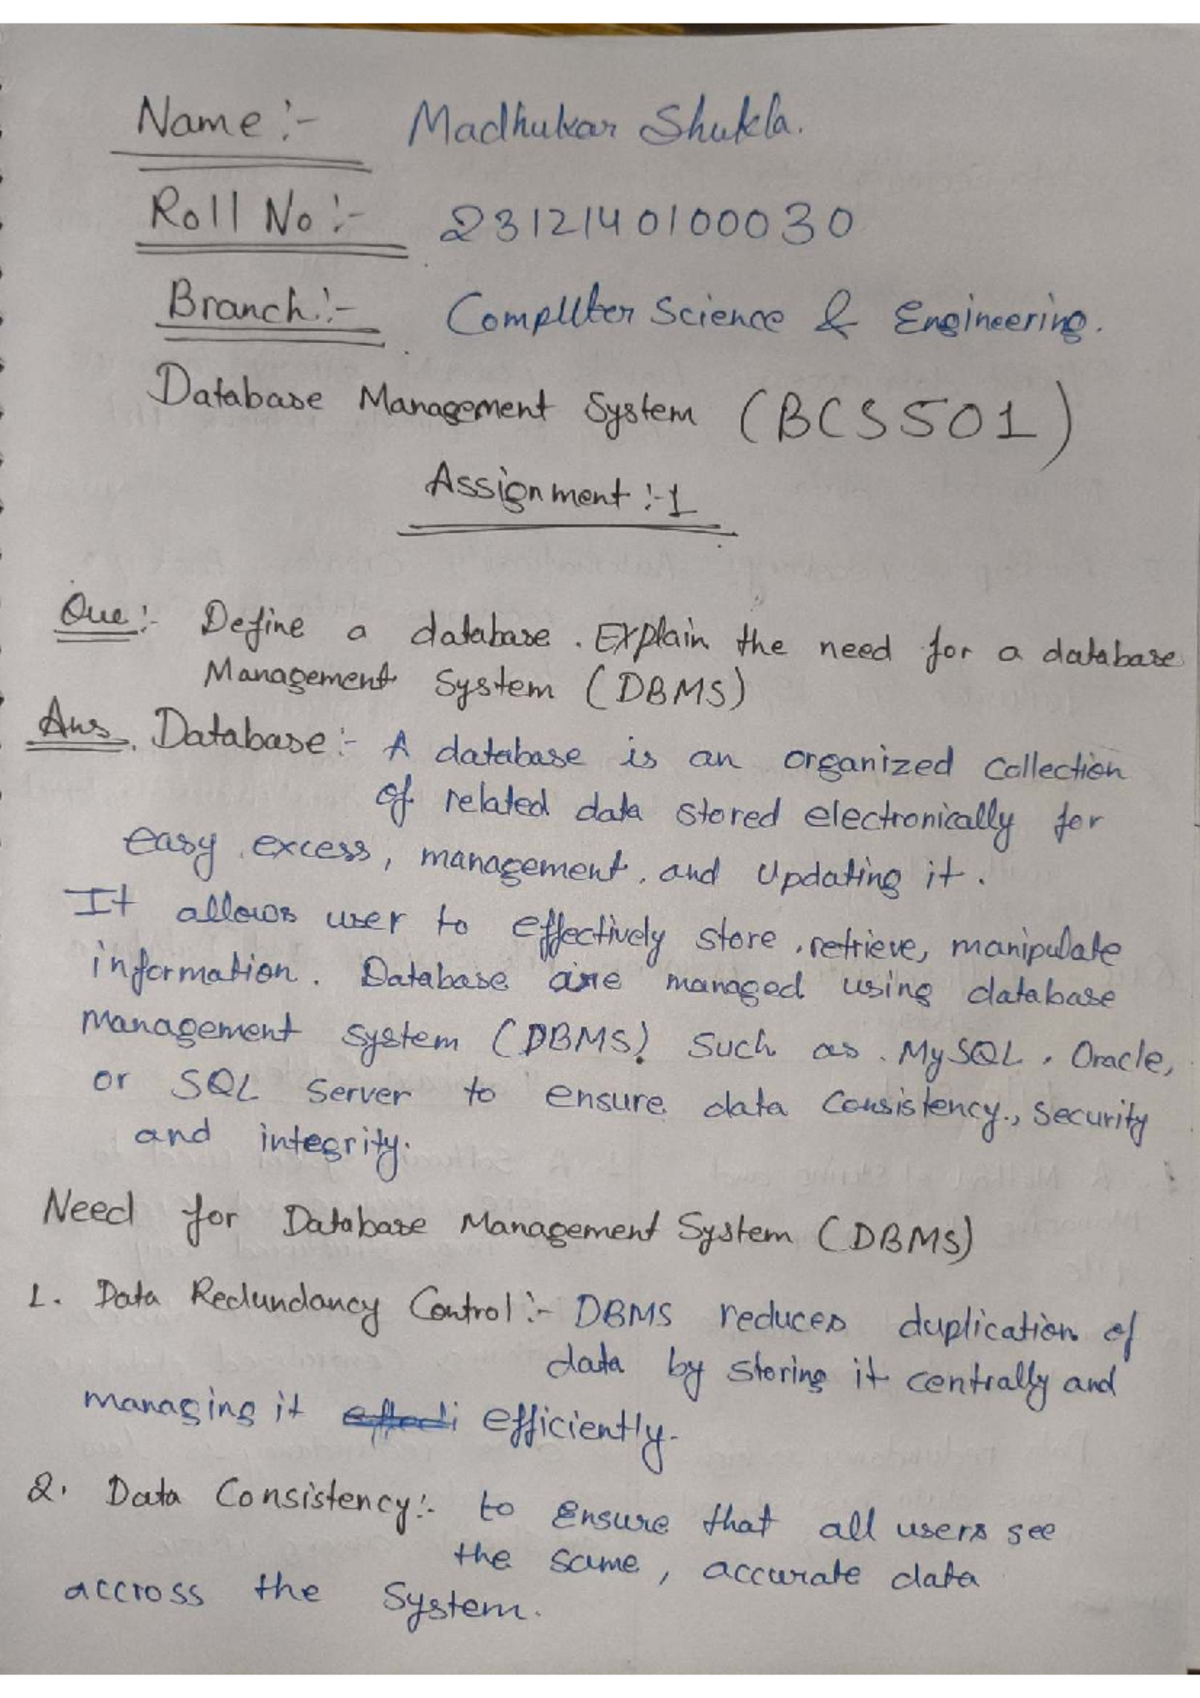 Name :- Madhukar Shukla.
Roll No :- 2312140100030
Branch :- Computer Science & Engineering.
Database Management System (BCS501)
Assignment :- 1
Que :- Define a database. Explain the need for a database
Management System (DBMS)
Ans. Database :- A database is an organized collection
of related data stored electronically for
easy excess, management, and Updating it.
It allows user to effectively store, retrieve, manipulate
information. Database are managed using database
Management system (DBMS) Such as MySQL, Oracle,
or SQL Server to ensure data Consistency, Security
and integrity.
Need for Database Management System (DBMS)
1. Data Redundancy Control :- DBMS reduces duplication of
data by storing it centrally and
managing it efficiently.
2. Data Consistency :- to Ensure that all users see
the same, accurate data
accross the System.